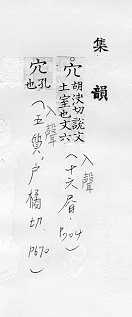 集韻
穴
胡決切說文
土室也文六
入聲
(十六屑，P704)
穴
孔
也
入聲
(五質，戶橘切，P670)